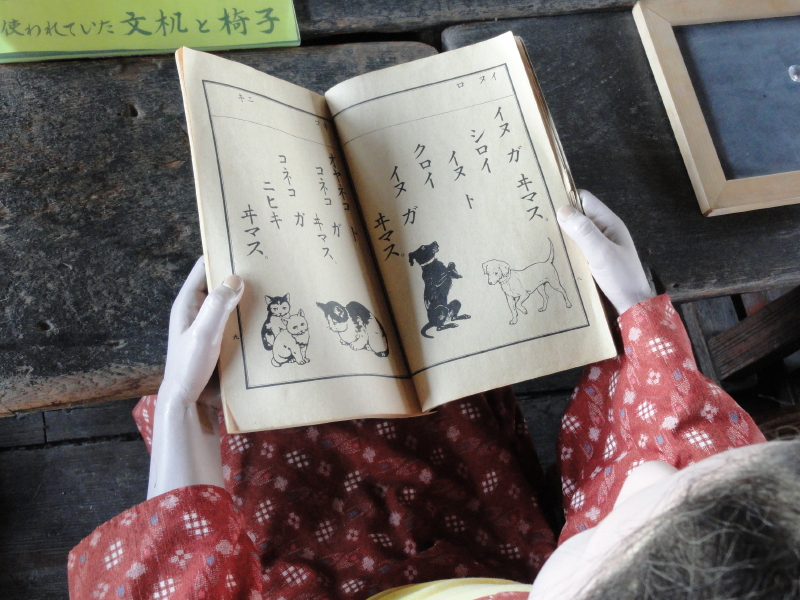 使われていた文机と椅子
イヌ ロ
イヌ ガ ヰマス。
シロイ
イヌ ト
クロイ
イヌ ガ
ヰマス。
オヤネコ ト
コネコ ガ
ヰマス、
コネコ ガ
ニヒキ
ヰマス。
九